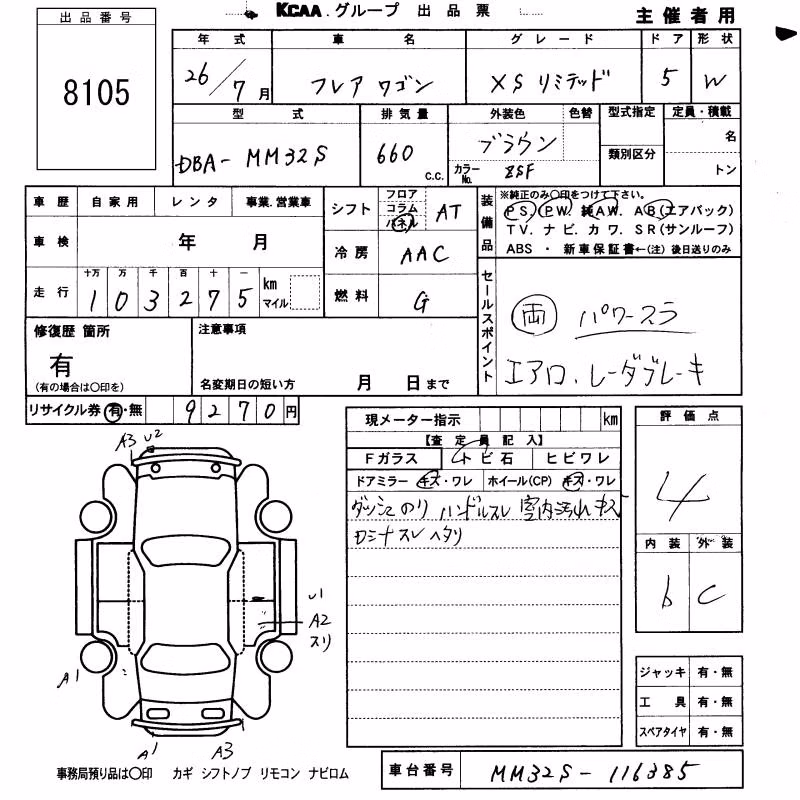 KCAA.グループ 出品票
主催者用
出品番号
8105
年式 車名 グレード ドア 形状
26/7月 フレアワゴン XSリミテッド 5 W
型式 排気量 外装色 色替 型式指定 定員・積載
DBA-MM32S 660 c.c. ブラウン 類別区分 名
カラーNo. ZSF トン
車歴 自家用 レンタ 事業.営業車
シフト フロア コラム パネル AT
車検 年 月
冷房 AAC
走行 十万 万 千 百 十 一 km マイル
103275
燃料 G
装備品
※純正のみ〇印をつけて下さい。
PS. PW. 純AW. AB(エアバック)
TV. ナビ. カワ. SR(サンルーフ)
ABS ・ 新車保証書←(注) 後日送りのみ
セールスポイント
両 パワースラ
エアロ.レーダブレーキ
修復歴 箇所
有
(有の場合は〇印を)
注意事項
名変期日の短い方 月 日まで
リサイクル券 有・無 9270円
現メーター指示 km
【査定員記入】
Fガラス トビ石 ヒビワレ
ドアミラー キズ・ワレ ホイール(CP) キズ・ワレ
ダッシュのり ハンドルスレ 室内汚れキズ
ロミナスレ ヘタリ
評価点
4
内装 外装
b C
A3 U2
U1
A2
スリ
A1
A1 A3
ジャッキ 有・無
工具 有・無
スペアタイヤ 有・無
事務局預り品は〇印 カギ シフトノブ リモコン ナビロム
車台番号 MM32S-116385